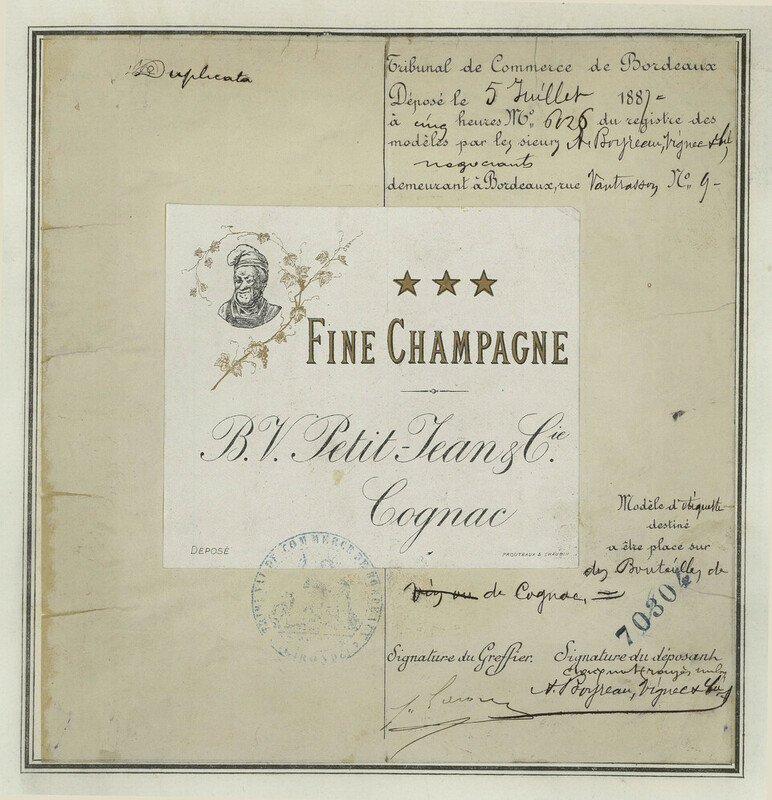 Duplicata
Tribunal de Commerce de Bordeaux
Déposé le 5 Juillet 1887
à cinq heures No. 6026 du registre des
modèles par les sieurs A. Boyreau, Vignec & Cie
negociants
demeurant à Bordeaux, rue Vantrasson No. 9
FINE CHAMPAGNE
B. V. Petit-Jean & Cie.
Cognac
DEPOSÉ
Modèle d'étiquette
destiné
a être place sur
des Bouteilles de
de Cognac,
70304
TRIBUNAL DE COMMERCE DE BORDEAUX
Signature du Greffier. Signature du déposant
A. Boyreau, Vignec & Cie